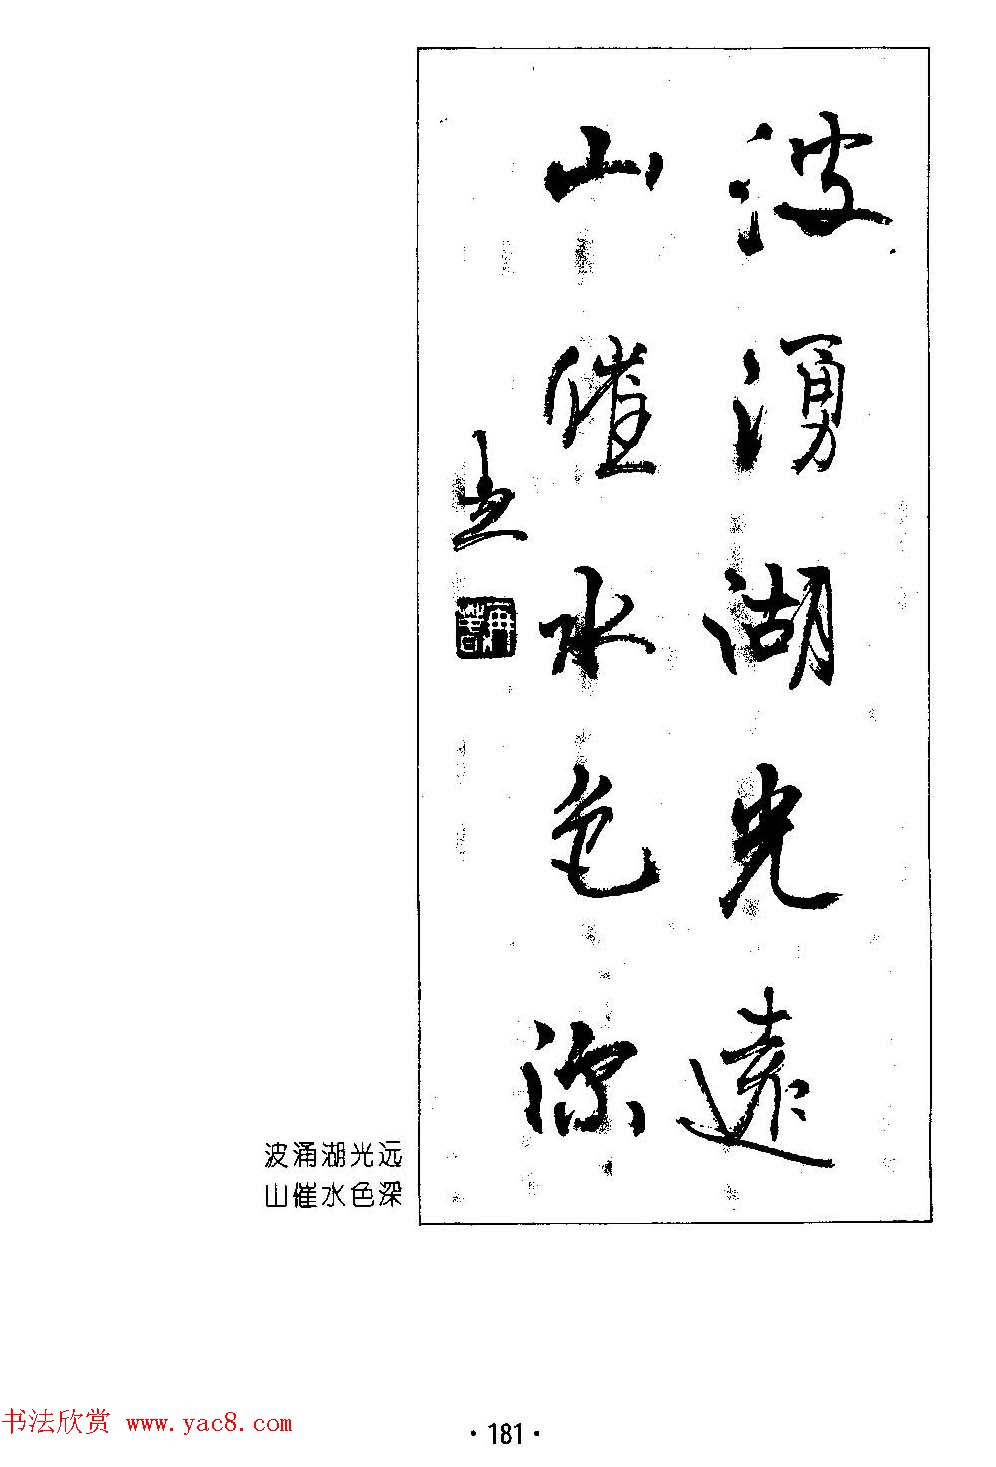 波湧湖光遠
山催水色深
波涌湖光远
山催水色深
书法欣赏 www.yac8.com
·181·